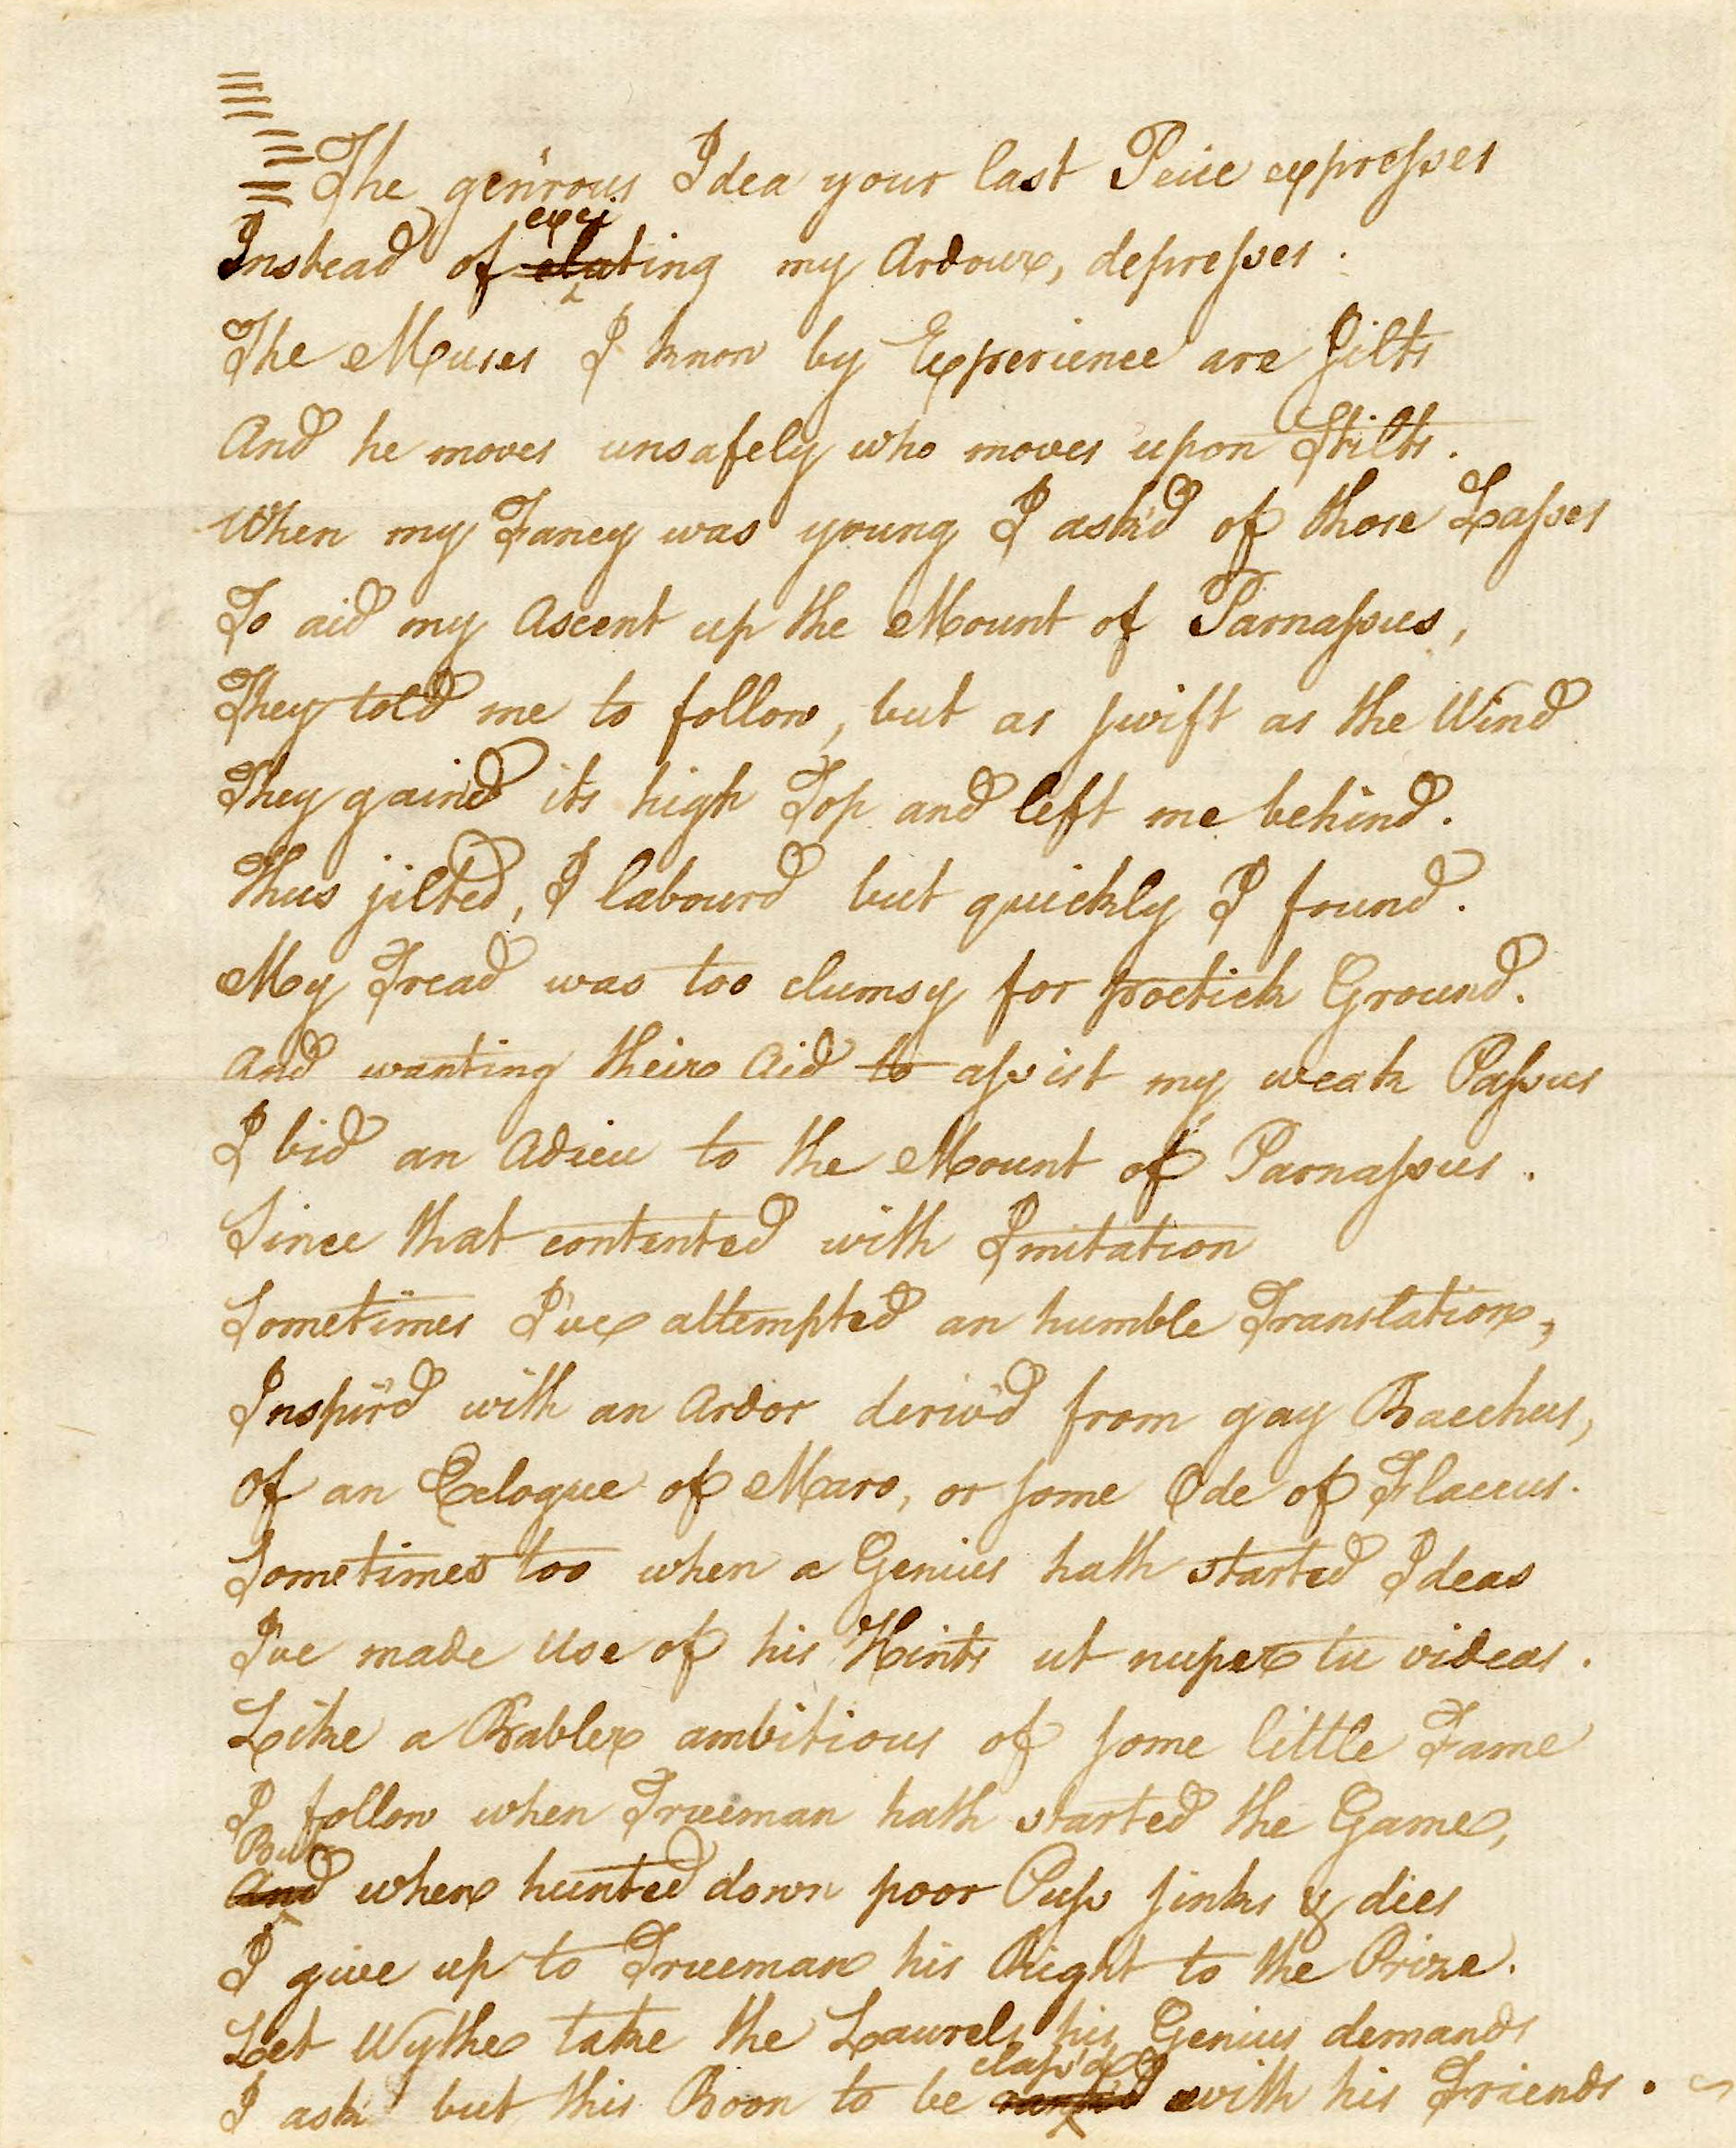 The gen'rous Idea your last Peice expresses
Instead of exciting my Ardour, depresses.
The Muses I know by Experience are Jilts
And he moves unsafely who moves upon Stilts.
When my Fancy was young I ask'd of those Lasses
To aid my Ascent up the Mount of Parnassus,
They told me to follow, but as swift as the Wind
They gain'd its high Top and left me behind.
Thus jilted, I labourd but quickly I found.
My Tread was too clumsy for poetick Ground.
And wanting their Aid to assist my weak Passus
I bid an Adieu to the Mount of Parnassus.
Since that contented with Imitation
Sometimes I've attempted an humble Translation,
Inspir'd with an Ardor deriv'd from gay Bacchus,
Of an Eclogue of Maro, or some Ode of Flaccus.
Sometimes too when a Genius hath started Ideas
I've made Use of his Hints ut nuper tu videas.
Like a Babler ambitious of some little Fame
I follow when Trueman hath started the Game,
But
And when hunted down poor Puss sinks & dies
I give up to Trueman his Right to the Prize.
Let Wythe take the Laurels his Genius demands
I ask but this Boon to be class'd with his Friends.